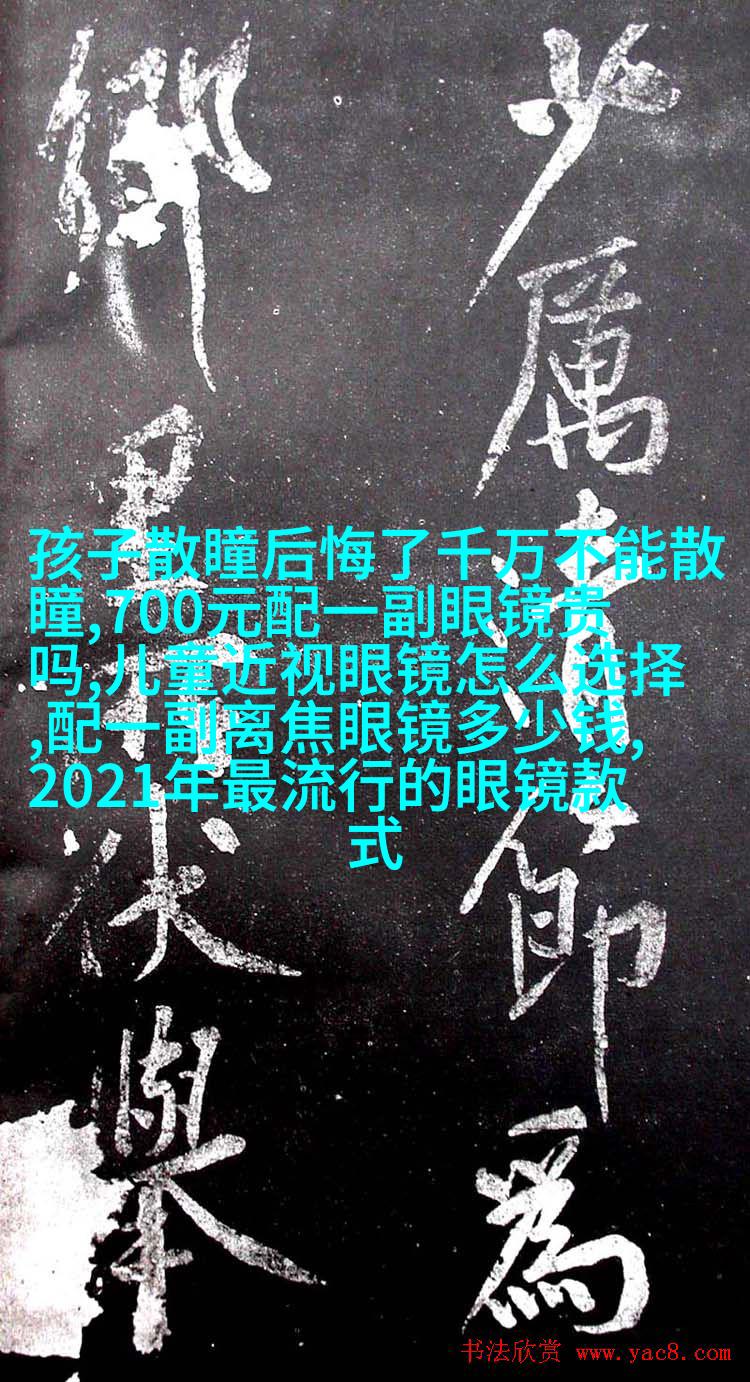 少厲清節為
鄉里所伏舉
孩子散瞳后悔了千万不能散
瞳,700元配一副眼镜贵
吗,儿童近视眼镜怎么选择
,配一副离焦眼镜多少钱,
2021年最流行的眼镜款
式
书法欣赏 www.yac8.com